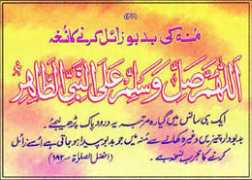 منہ کی بدبو زائل کرنے کا نسخہ
اَللّٰھُمَّ صَلِّ وَسَلِّمْ عَلَی النَّبِیِّ الطَّاھِرِ
ایک ہی سانس میں گیارہ مرتبہ یہ درود پاک پڑھ لیجئے۔
بدبودار چیزیں وغیرہ کھانے سے منہ میں جو بدبو پیدا ہو جاتی ہے اسے زائل
کرنے کا مجرب نسخہ ہے۔